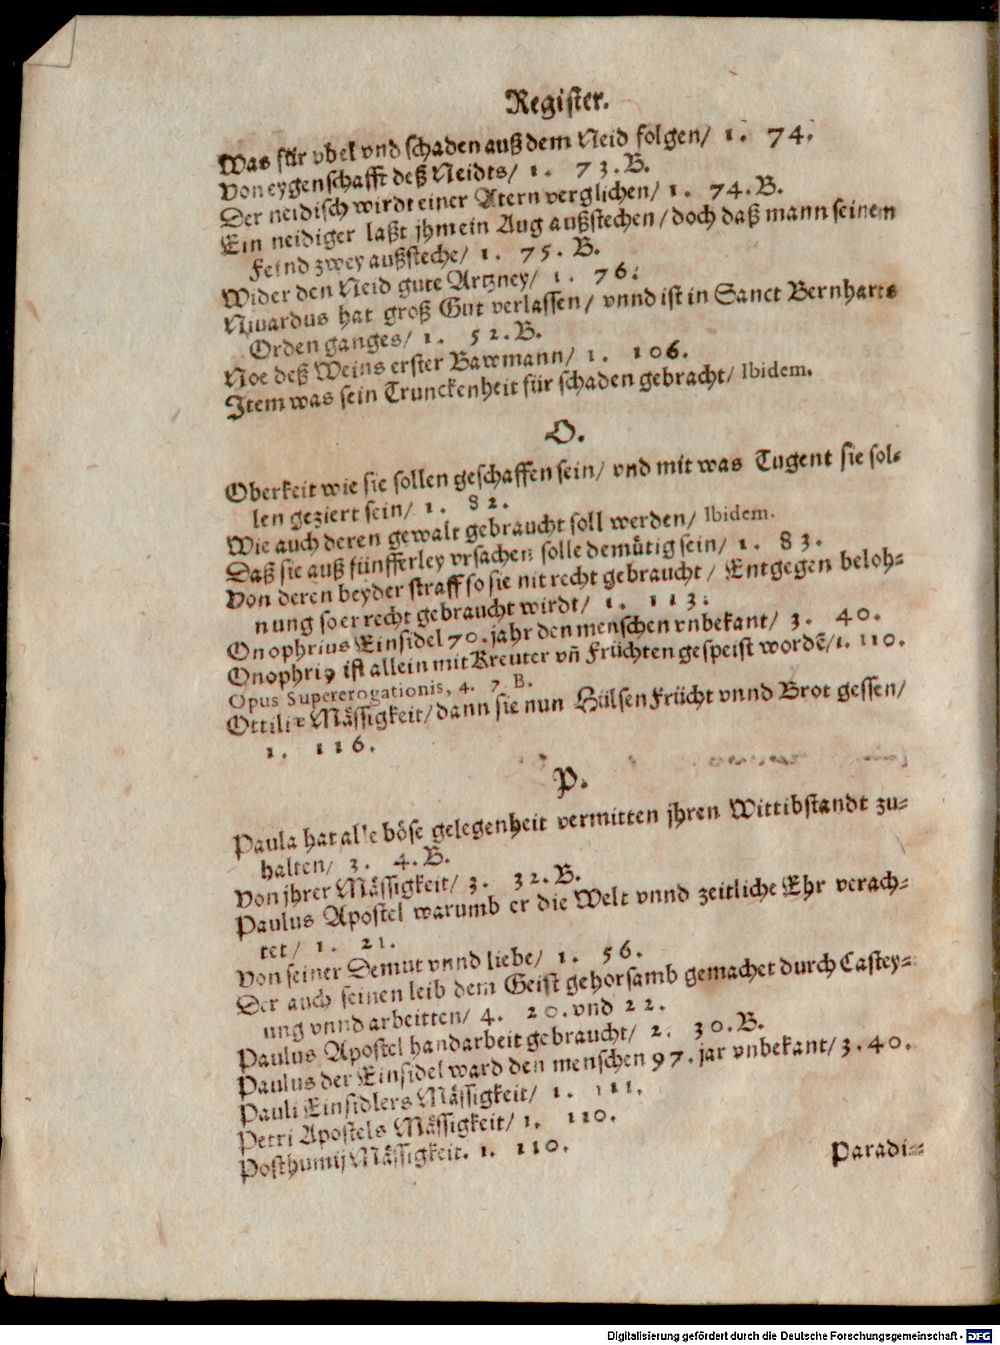 Register.
Was für vbel vnd schaden auß dem Neid folgen/ 1. 74.
Von eygenschafft deß Neidts/ 1. 73. B.
Der neidisch wirdt einer Atern verglichen/ 1. 74. B.
Ein neidiger laßt jhm ein Aug außstechen/ doch daß mann seinem
Feind zwey außsteche/ 1. 75. B.
Wider den Neid gute Artzney/ 1. 76.
Nivardus hat groß Gut verlassen/ vnnd ist in Sanct Bernharts
Orden ganges/ 1. 52. B.
Noe deß Weins erster Bawmann/ 1. 106.
Item was sein Trunckenheit für schaden gebracht/ Ibidem.
O.
Oberkeit wie sie sollen geschaffen sein/ vnd mit was Tugent sie sol-
len geziert sein/ 1. 82.
Wie auch deren gewalt gebraucht soll werden/ Ibidem.
Daß sie auß fünfferley vrsachen solle demütig sein/ 1. 83.
Von deren beyder straff so sie nit recht gebraucht/ Entgegen beloh-
nung so er recht gebraucht wirdt/ 1. 113.
Onophrius Einsidel 70. jahr den menschen vnbekant/ 3. 40.
Onophriꝰ ist allein mit Kreuter vñ Früchten gespeist wordẽ/ 1. 110.
Opus Supererogationis, 4. 7. B.
Ottiliæ Mässigkeit/ dann sie nun Hülsen Frücht vnnd Brot gessen/
1. 116.
P.
Paula hat alle böse gelegenheit vermitten jhren Wittibstandt zu-
halten/ 3. 4. B.
Von jhrer Mässigkeit/ 3. 32. B.
Paulus Apostel warumb er die Welt vnnd zeitliche Ehr verach-
tet/ 1. 21.
Von seiner Demut vnnd liebe/ 1. 56.
Der auch seinen leib dem Geist gehorsamb gemachet durch Castey-
ung vnnd arbeitten/ 4. 20. vnd 22.
Paulus Apostel handarbeit gebraucht/ 2. 30. B.
Paulus der Einsidel ward den menschen 97. jar vnbekant/ 3. 40.
Pauli Einsidlers Mässigkeit/ 1. 111.
Petri Apostels Mässigkeit/ 1. 110.
Posthumij Mässigkeit. 1. 110.
Paradi-
Digitalisierung gefördert durch die Deutsche Forschungsgemeinschaft - DFG